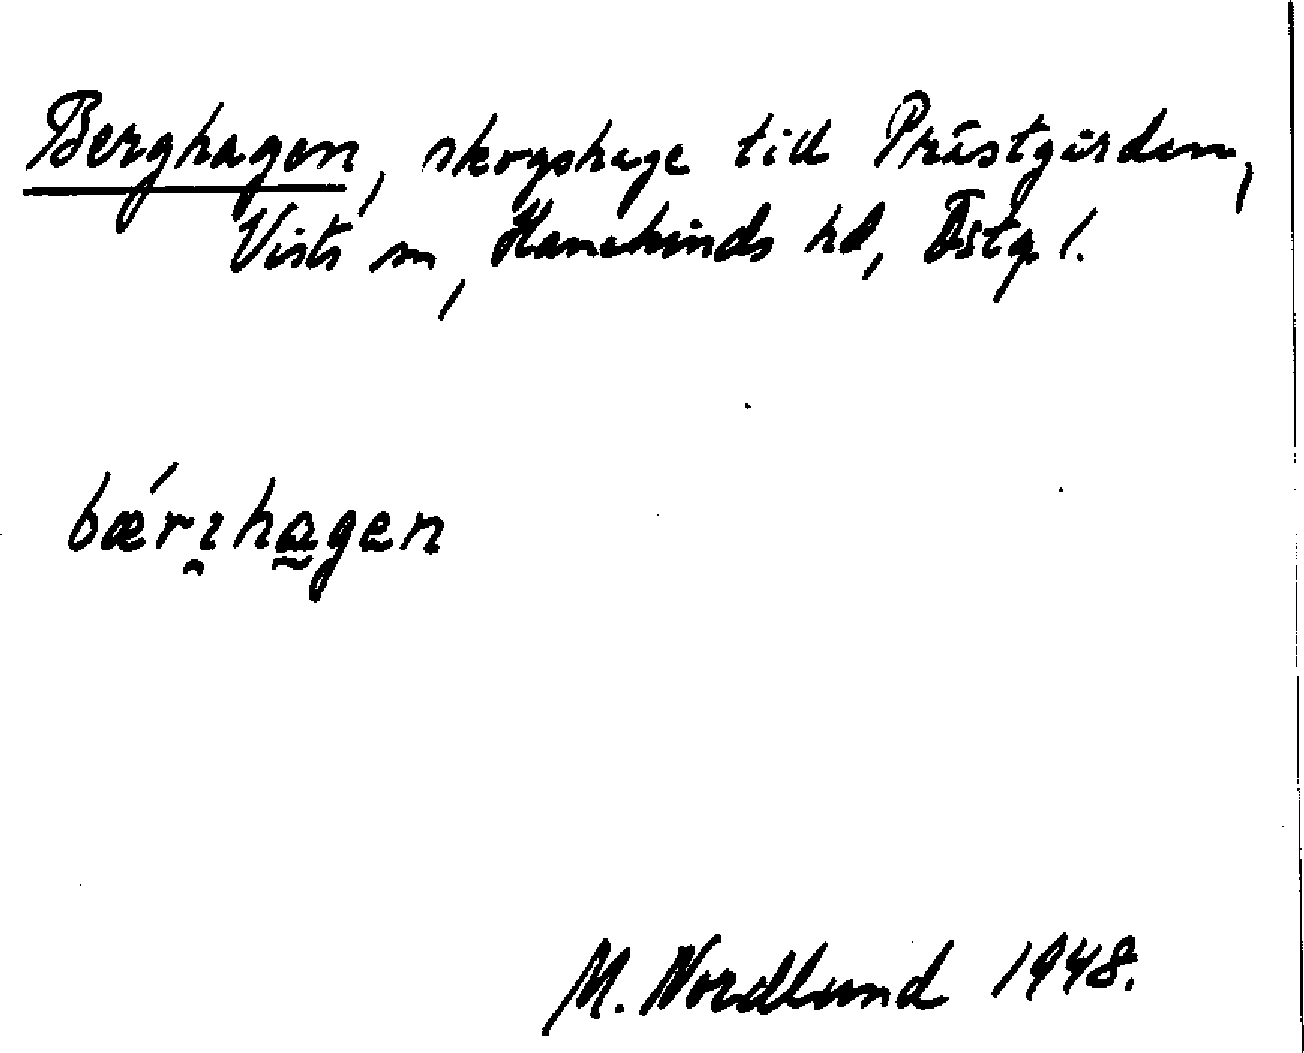 Berghagen, skogshage till Prästgården,
Vists sn, Hanekinds hd, Östg l.
bǽrıhagen
M. Nordlund 1948.